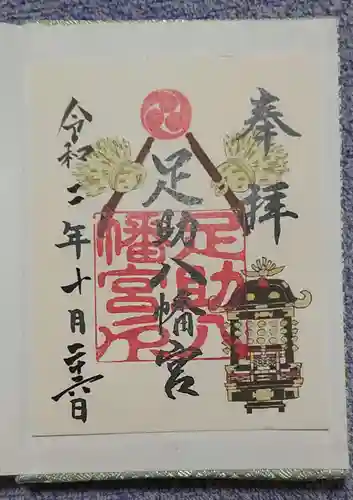 奉拝
足助八幡宮
令和二年十月二十六日
足助八
幡宮